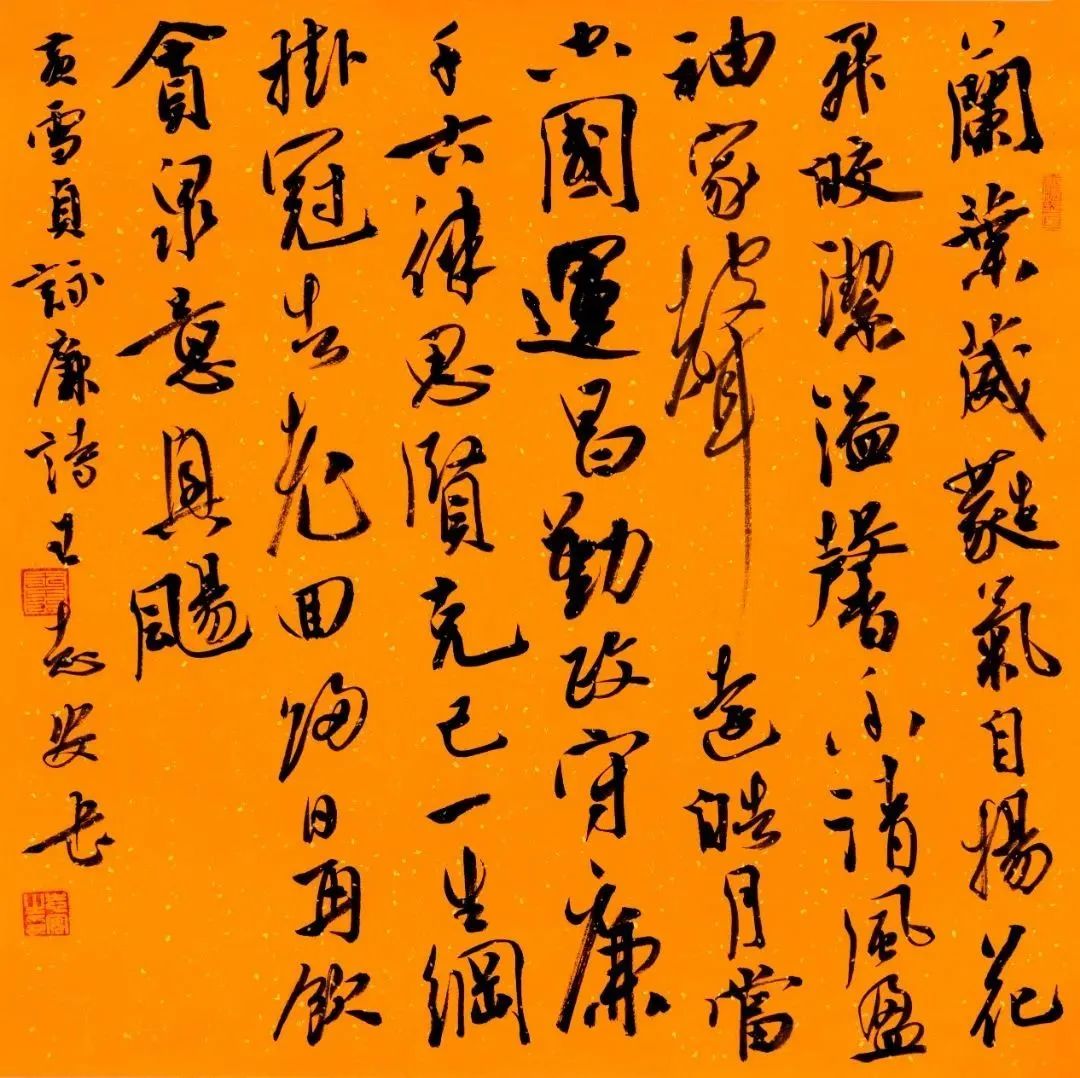 蘭葉葳蕤氣自揚花
昇皎潔溢馨香清風盈
袖家聲遠皓月當
空國運昌勤政守廉
千古律思賢克己一生綱
掛冠告老回歸日再飲
貪泉意興颺
黃雪貞詠廉詩王志安書